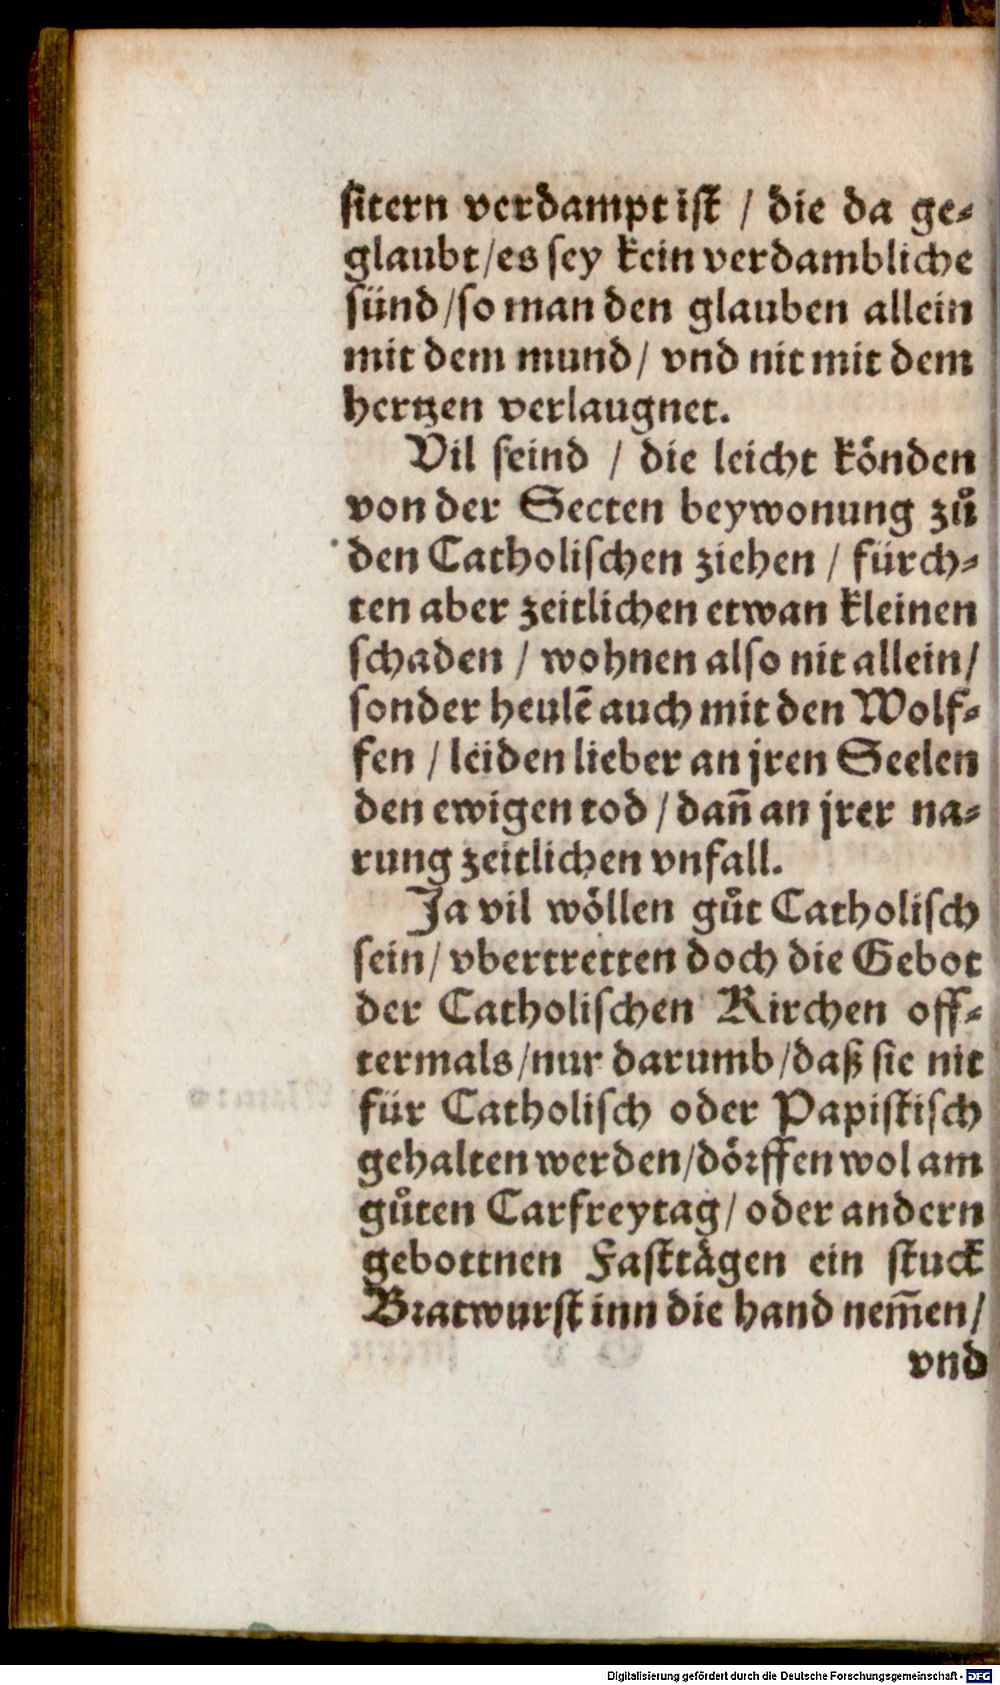 sitern verdampt ist / die da ge-
glaubt / es sey kein verdambliche
sünd / so man den glauben allein
mit dem mund / vnd nit mit dem
hertzen verlaugnet.
Vil seind / die leicht koͤnden
von der Secten beywonung zuͦ
den Catholischen ziehen / fürch-
ten aber zeitlichen etwan kleinen
schaden / wohnen also nit allein /
sonder heulẽ auch mit den Wolf-
fen / leiden lieber an jren Seelen
den ewigen tod / dañ an jrer na-
rung zeitlichen vnfall.
Ja vil woͤllen guͦt Catholisch
sein / vbertretten doch die Gebot
der Catholischen Kirchen off-
termals / nur darumb / daß sie nit
für Catholisch oder Papistisch
gehalten werden / doͤrffen wol am
guͦten Carfreytag / oder andern
gebottnen Fasttaͤgen ein stuck
Bratwurst inn die hand nem̃en /
vnd
Digitalisierung gefördert durch die Deutsche Forschungsgemeinschaft - DFG